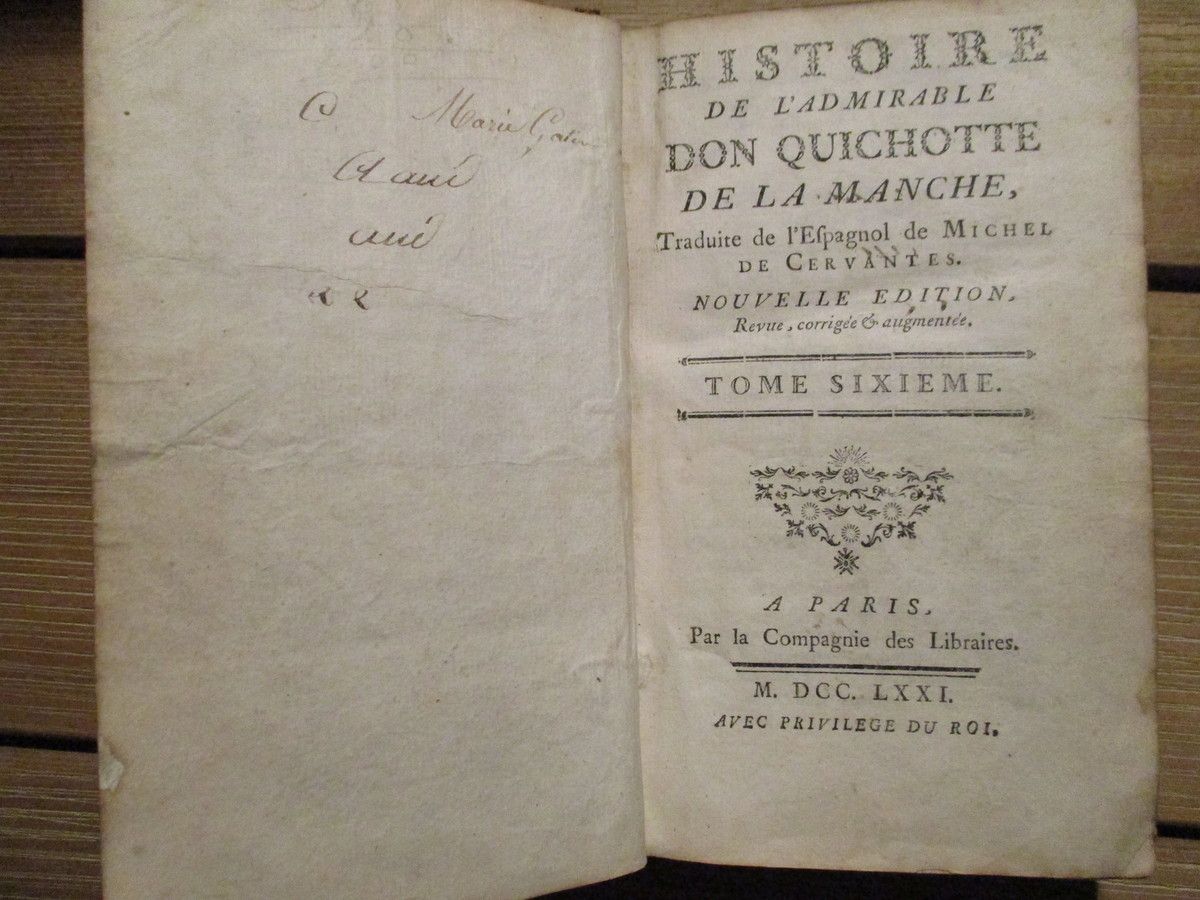 C. Marie
HISTOIRE
DE L'ADMIRABLE
DON QUICHOTTE
DE LA MANCHE,
Traduite de l'Eſpagnol de MICHEL
DE CERVANTES.
NOUVELLE EDITION,
Revue, corrigée & augmentée.
TOME SIXIEME.
A PARIS,
Par la Compagnie des Libraires.
M. DCC. LXXI.
AVEC PRIVILEGE DU ROI.